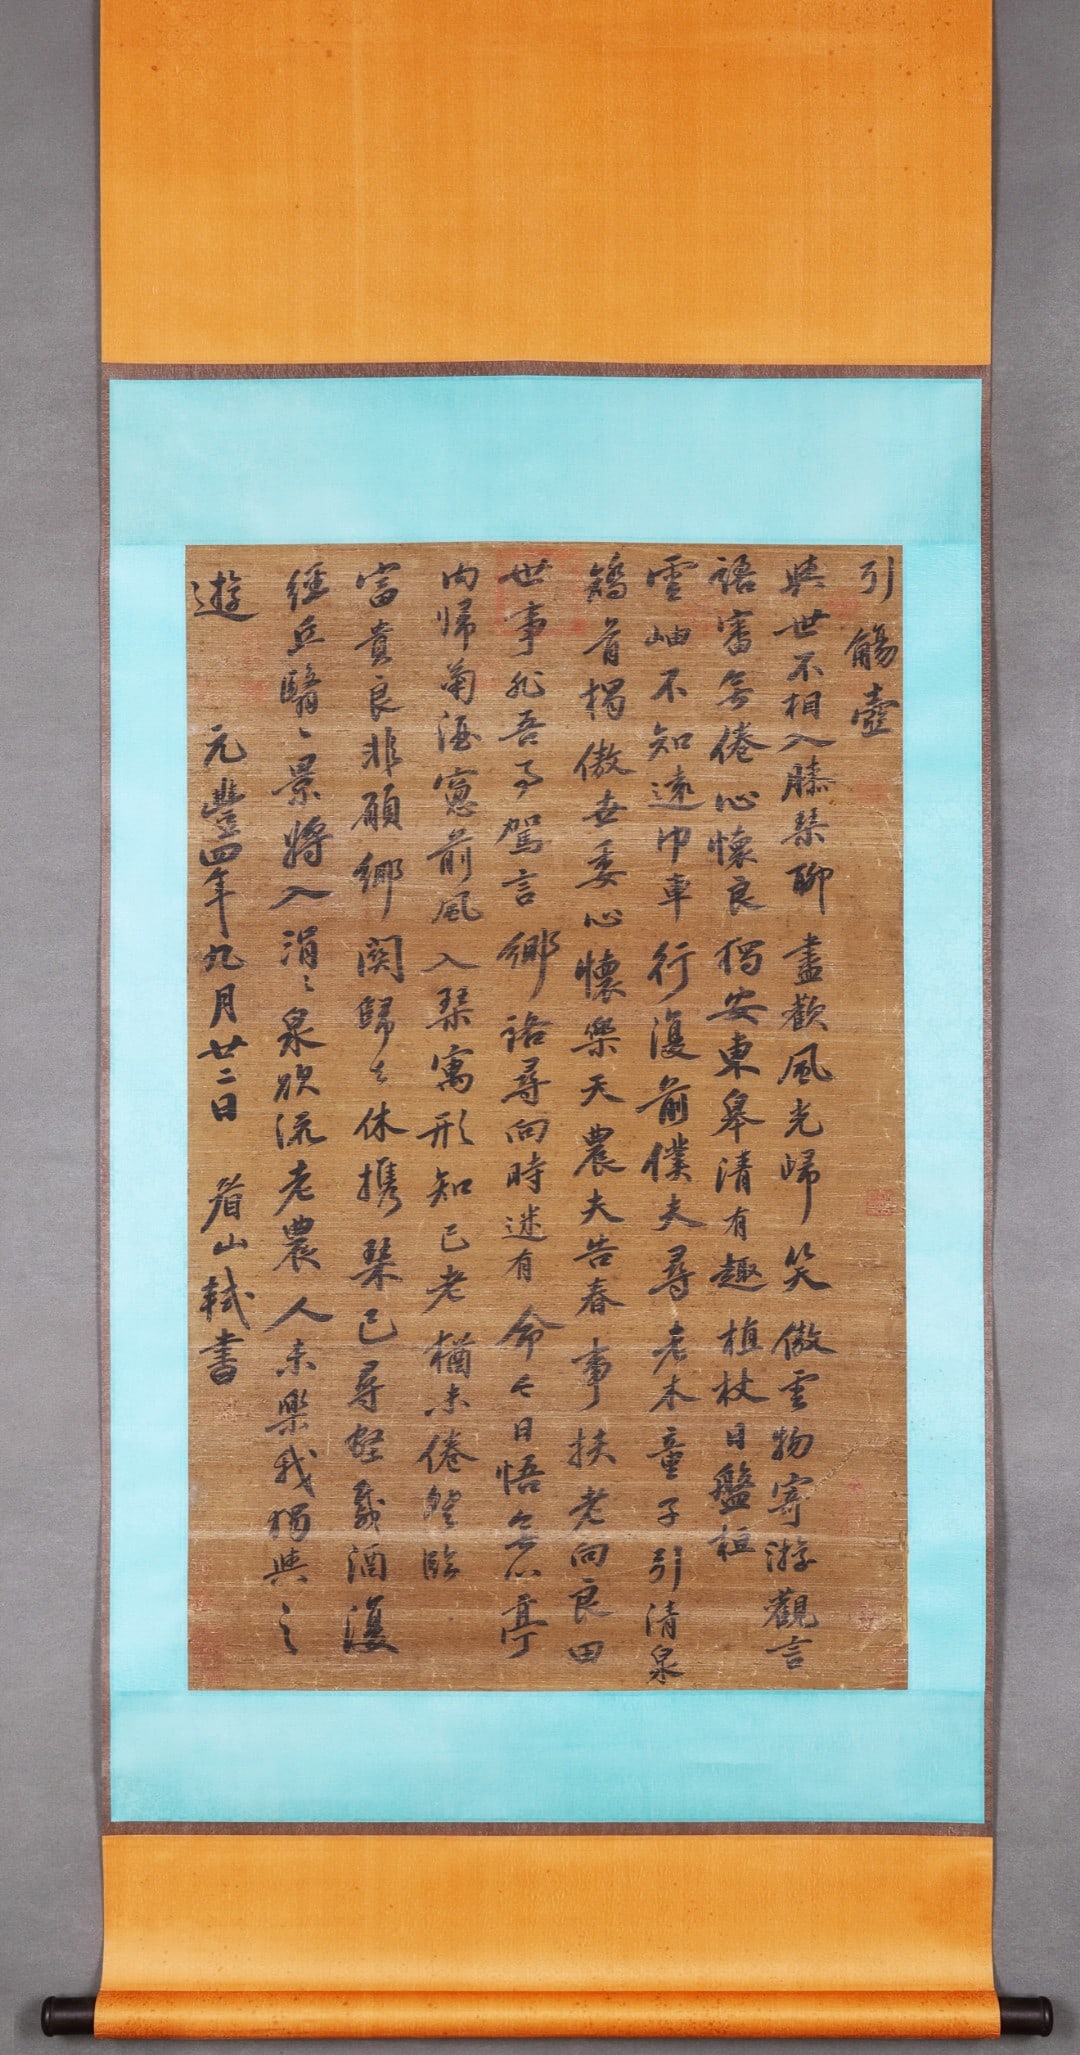 引觴壺
與世不相入膝琴聊盡歡風光歸笑傲雲物寄游觀言
語審無倦心懷良獨安東皋清有趣植杖日盤桓
雲岫不知遠巾車行復前僕夫尋老木童子引清泉
矯首獨傲世委心懷樂天農夫告春事扶老向良田
世事非吾事駕言鄉路尋向時迷有命今日悟無心亭
內歸菊酒窓前風入琴寓形知已老猶未倦登臨
富貴良非願鄉關歸去休攜琴已尋壑載酒復
經丘翳々景將入涓々泉欲流老農人未樂我獨與之
遊 元豐四年九月廿二日 眉山軾書